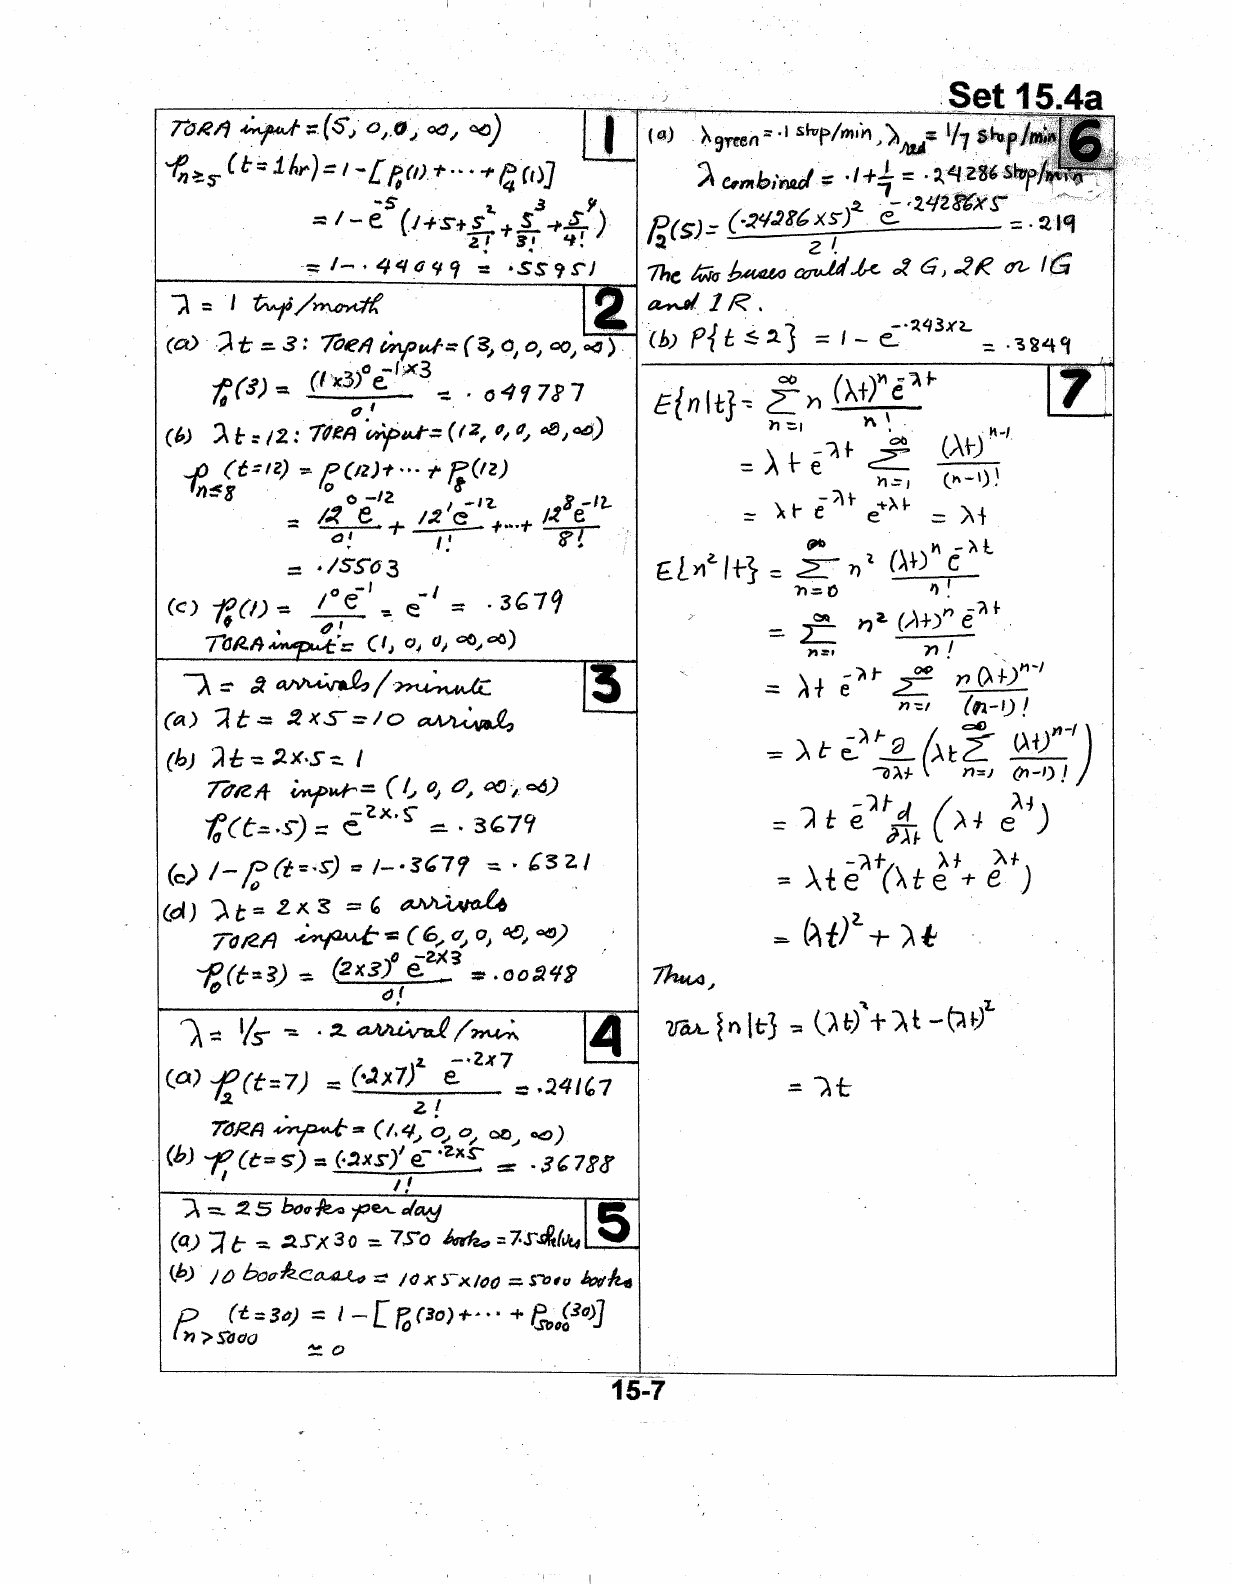 Set 15.4a
1
TORA input = (5, 0, 0, ∞, ∞)
p_{n≥5} (t = 1 hr) = 1 - [p_0(1) + ··· + p_4(1)]
= 1 - e^{-5} (1 + 5 + 5^2/2! + 5^3/3! + 5^4/4!)
= 1 - .44049 = .55951
2
λ = 1 trip/month
(a) λt = 3: TORA input = (3, 0, 0, ∞, ∞)
p_0(3) = (1×3)^0 e^{-1×3} / 0! = .049787
(b) λt = 12: TORA input = (12, 0, 0, ∞, ∞)
p_{n≤8} (t=12) = p_0(12) + ··· + p_8(12)
= 12^0 e^{-12}/0! + 12^1 e^{-12}/1! + ··· + 12^8 e^{-12}/8!
= .15503
(c) p_0(1) = 1^0 e^{-1}/0! = e^{-1} = .3679
TORA input = (1, 0, 0, ∞, ∞)
3
λ = 2 arrivals/minute
(a) λt = 2×5 = 10 arrivals
(b) λt = 2×.5 = 1
TORA input = (1, 0, 0, ∞, ∞)
p_0(t=.5) = e^{-2×.5} = .3679
(c) 1 - p_0(t=.5) = 1 - .3679 = .6321
(d) λt = 2×3 = 6 arrivals
TORA input = (6, 0, 0, ∞, ∞)
p_0(t=3) = (2×3)^0 e^{-2×3} / 0! = .00248
4
λ = 1/5 = .2 arrival/min
(a) p_2(t=7) = (.2×7)^2 e^{-.2×7} / 2! = .24167
TORA input = (1.4, 0, 0, ∞, ∞)
(b) p_1(t=5) = (.2×5)^1 e^{-.2×5} / 1! = .36788
5
λ = 25 books per day
(a) λt = 25×30 = 750 books = 7.5 shelves
(b) 10 bookcases = 10×5×100 = 5000 books
p_{n>5000} (t=30) = 1 - [p_0(30) + ··· + p_{5000}(30)]
≃ 0
6
(a) λ_green = .1 stop/min, λ_red = 1/7 stop/min
λ combined = .1 + 1/7 = .24286 stop/min
p_2(5) = (.24286×5)^2 e^{-.24286×5} / 2! = .219
The two buses could be 2 G, 2R or 1G
and 1 R.
(b) P{t ≤ 2} = 1 - e^{-.243×2} = .3849
7
E{n|t} = Σ_{n=1}^∞ n (λt)^n e^{-λt} / n!
= λt e^{-λt} Σ_{n=1}^∞ (λt)^{n-1} / (n-1)!
= λt e^{-λt} e^{+λt} = λt
E{n^2|t} = Σ_{n=0}^∞ n^2 (λt)^n e^{-λt} / n!
= Σ_{n=1}^∞ n^2 (λt)^n e^{-λt} / n!
= λt e^{-λt} Σ_{n=1}^∞ n (λt)^{n-1} / (n-1)!
= λt e^{-λt} ∂/∂λt (λt Σ_{n=1}^∞ (λt)^{n-1} / (n-1)!)
= λt e^{-λt} d/∂λt (λt e^{λt})
= λt e^{-λt} (λt e^{λt} + e^{λt})
= (λt)^2 + λt
Thus,
var {n|t} = (λt)^2 + λt - (λt)^2
= λt
15-7